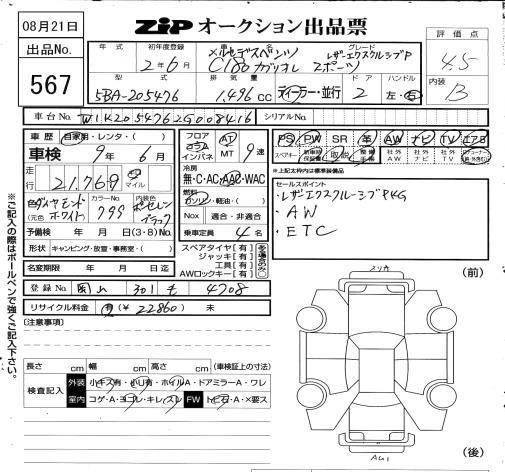 08月21日
出品No.
567
ZIP オークション出品票
年式 初年度登録 車名 グレード
2年6月 メルセデスベンツ C180カブリオレ スポーツ レザーエクスクルーシブP
型式 排気量 ドア ハンドル
5BA-205476 1,496cc ディーラー・並行 2 左・右
評価点
4.5
内装
B
車台No. W1K2054762G008416 シリアルNo.
車歴 自家用・レンタ・( )
車検 9年 6月
走行 21,769 マイル
色 ダイヤモンドホワイト (元色 カラーNo. 799 内装色
予備検 月 日 (3・8)No.
形状 キャンピング・放置・事務室・( )
名変期限 年 月 日迄
フロア コラム インパネ AT MT 9速
冷房 無・C・AC・AAC・WAC
燃料 ガソリン・軽油・( )
Nox 適合・非適合
乗車定員 4名
スペアタイヤ[有]
ジャッキ[有]
工具[有]
AWロックキー[有]
ある場合のみ○
PS PW SR 革 AW ナビ TV エアB
スペアキー 新車時保証書 取説 整備手帳 社外AW 社外ナビ 社外TV
*上記太枠内は標準装備品
セールスポイント
・レザーエクスクルーシブPKG
・AW
・ETC
登録No. 岡山 301 も 4708
リサイクル料金 有(¥22860) 未
[注意事項]
長さ cm 幅 cm 高さ cm (車検証上の寸法)
検査記入 外装 小キズ有・小凹有・ホイルA・ドアミラーA・ワレ
室内 コゲ・A・ヨゴレ・キレ・スレ FW トビ石・A・X要ス
※ご記入の際はボールペンで強くご記入下さい。
(前)
スリA
(後)
AU1